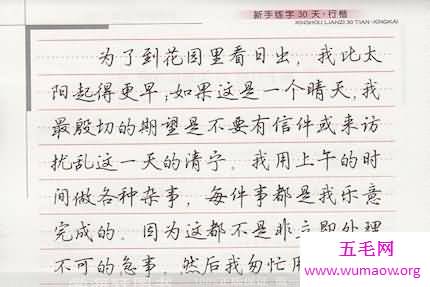 新手练字30天·行楷
XINSHOU LIANZI 30 TIAN·XINGKAI
为了到花园里看日出，我比太
阳起得更早；如果这是一个晴天，我
最殷切的期望是不要有信件或来访
扰乱这一天的清宁。我用上午的时
间做各种杂事，每件事都是我乐意
完成的。因为这都不是非立即处理
不可的急事，然后我匆忙用
五毛网
www.wumaow.org